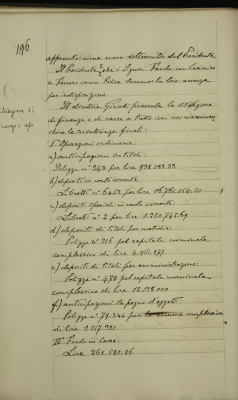 196
approvato viene sottoscritto dal Presidente
Il Presidente che i Signori
e Ferrero comm. Felice la loro assenza
per indisposizione.
Il direttore presenta la situazione
di finanza e di cassa a tutto ieri
done le risultanze finali:
I Operazioni ordinarie
a) anticipazioni su titoli:
Polizze n° 343 per lire 938.083.33
b) depositi in conto corrente:
Libretti n° 6452 per lire 16.761.054.60
c) depositi speciali in conto corrente:
Libretti n° 2 per lire 1.250.745.69
d) depositi di titoli per custodia:
Polizze n° 216 pel capitale nominale
complessivo di lire 4.961.377
e) depositi di titoli per amministrazione:
Polizze n° 478 pel capitale nominale
complessivo di lire 12.178.000
f) anticipazioni su pegno d'oggetti:
Polizze n° 79.244 per somma complessiva
di lire 1.517.321
II Fondo in cassa:
Lire 268.580.26.